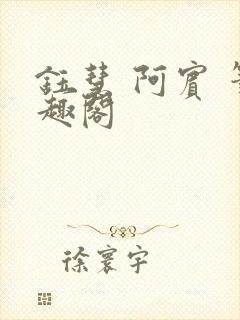 鈺慧 阿賓
趣閣
徐寰宇